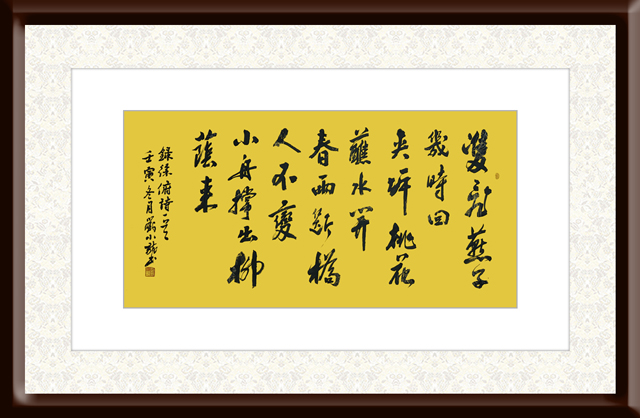 雙飛燕子
幾時回
夾岸桃花
蘸水開
春雨斷橋
人不變
小舟撐出柳
蔭来
録徐俯詩一首
壬寅冬月小龍书